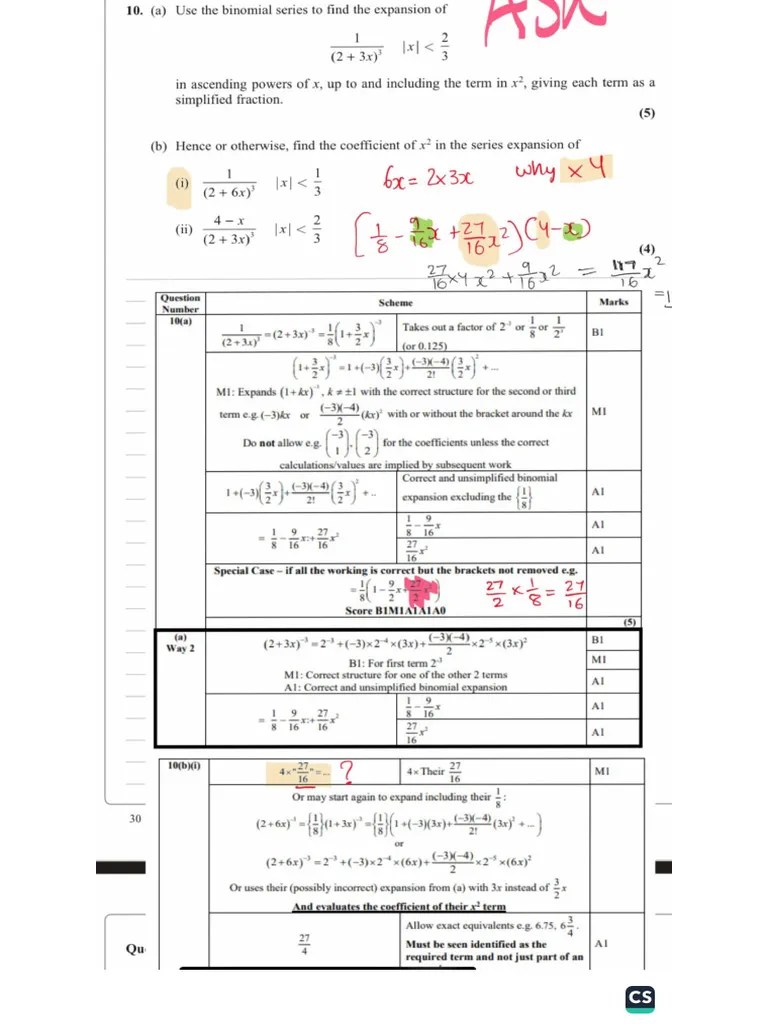 10. (a) Use the binomial series to find the expansion of
ASK
1/(2 + 3x)³ |x| < 2/3
in ascending powers of x, up to and including the term in x², giving each term as a
simplified fraction.
(5)
(b) Hence or otherwise, find the coefficient of x² in the series expansion of
(i) 1/(2 + 6x)³ |x| < 1/3 6x = 2x3x why x 4
(ii) (4 − x)/(2 + 3x)³ |x| < 2/3 [1/8 − 9/16 x + 27/16 x²)(4−x)
(4)
27/16 x4 x² + 9/16 x² = 117/16 x²
Question Number Scheme Marks
10(a) 1/(2+3x)³ = (2+3x)⁻³ = 1/8(1+3/2 x)⁻³ Takes out a factor of 2⁻³ or 1/8 or 1/2³ (or 0.125) B1
(1+3/2 x)⁻³ = 1+(−3)(3/2 x)+(−3)(−4)/2!(3/2 x)²+...
M1: Expands (1+kx)⁻³, k ≠ ±1 with the correct structure for the second or third
term e.g. (−3)kx or (−3)(−4)/2 (kx)² with or without the bracket around the kx M1
Do not allow e.g. (−3 1), (−3 2) for the coefficients unless the correct
calculations/values are implied by subsequent work
1+(−3)(3/2 x)+(−3)(−4)/2!(3/2 x)²+.. Correct and unsimplified binomial expansion excluding the {1/8} A1
= 1/8 − 9/16 x+ 27/16 x² 1/8 − 9/16 x A1
27/16 x² A1
Special Case – if all the working is correct but the brackets not removed e.g.
= 1/8(1 − 9/2 x+ 27/2 x²) 27/2 x 1/8 = 27/16
Score B1M1A1A1A0
(5)
(a) Way 2 (2+3x)⁻³ = 2⁻³+(−3)×2⁻⁴×(3x)+(−3)(−4)/2 ×2⁻⁵×(3x)² B1
B1: For first term 2⁻³ M1
M1: Correct structure for one of the other 2 terms
A1: Correct and unsimplified binomial expansion A1
= 1/8 − 9/16 x+ 27/16 x² 1/8 − 9/16 x A1
27/16 x² A1
10(b)(i) 4×"27/16"=... ? 4×Their 27/16 M1
Or may start again to expand including their 1/8 :
(2+6x)⁻³ = {1/8}(1+3x)⁻³ = {1/8}(1+(−3)(3x)+(−3)(−4)/2!(3x)²+...)
or
(2+6x)⁻³ = 2⁻³+(−3)×2⁻⁴×(6x)+(−3)(−4)/2 ×2⁻⁵×(6x)²
Or uses their (possibly incorrect) expansion from (a) with 3x instead of 3/2 x
And evaluates the coefficient of their x² term
27/4 Allow exact equivalents e.g. 6.75, 6 3/4 . A1
Must be seen identified as the
required term and not just part of an
30
Qu
CS